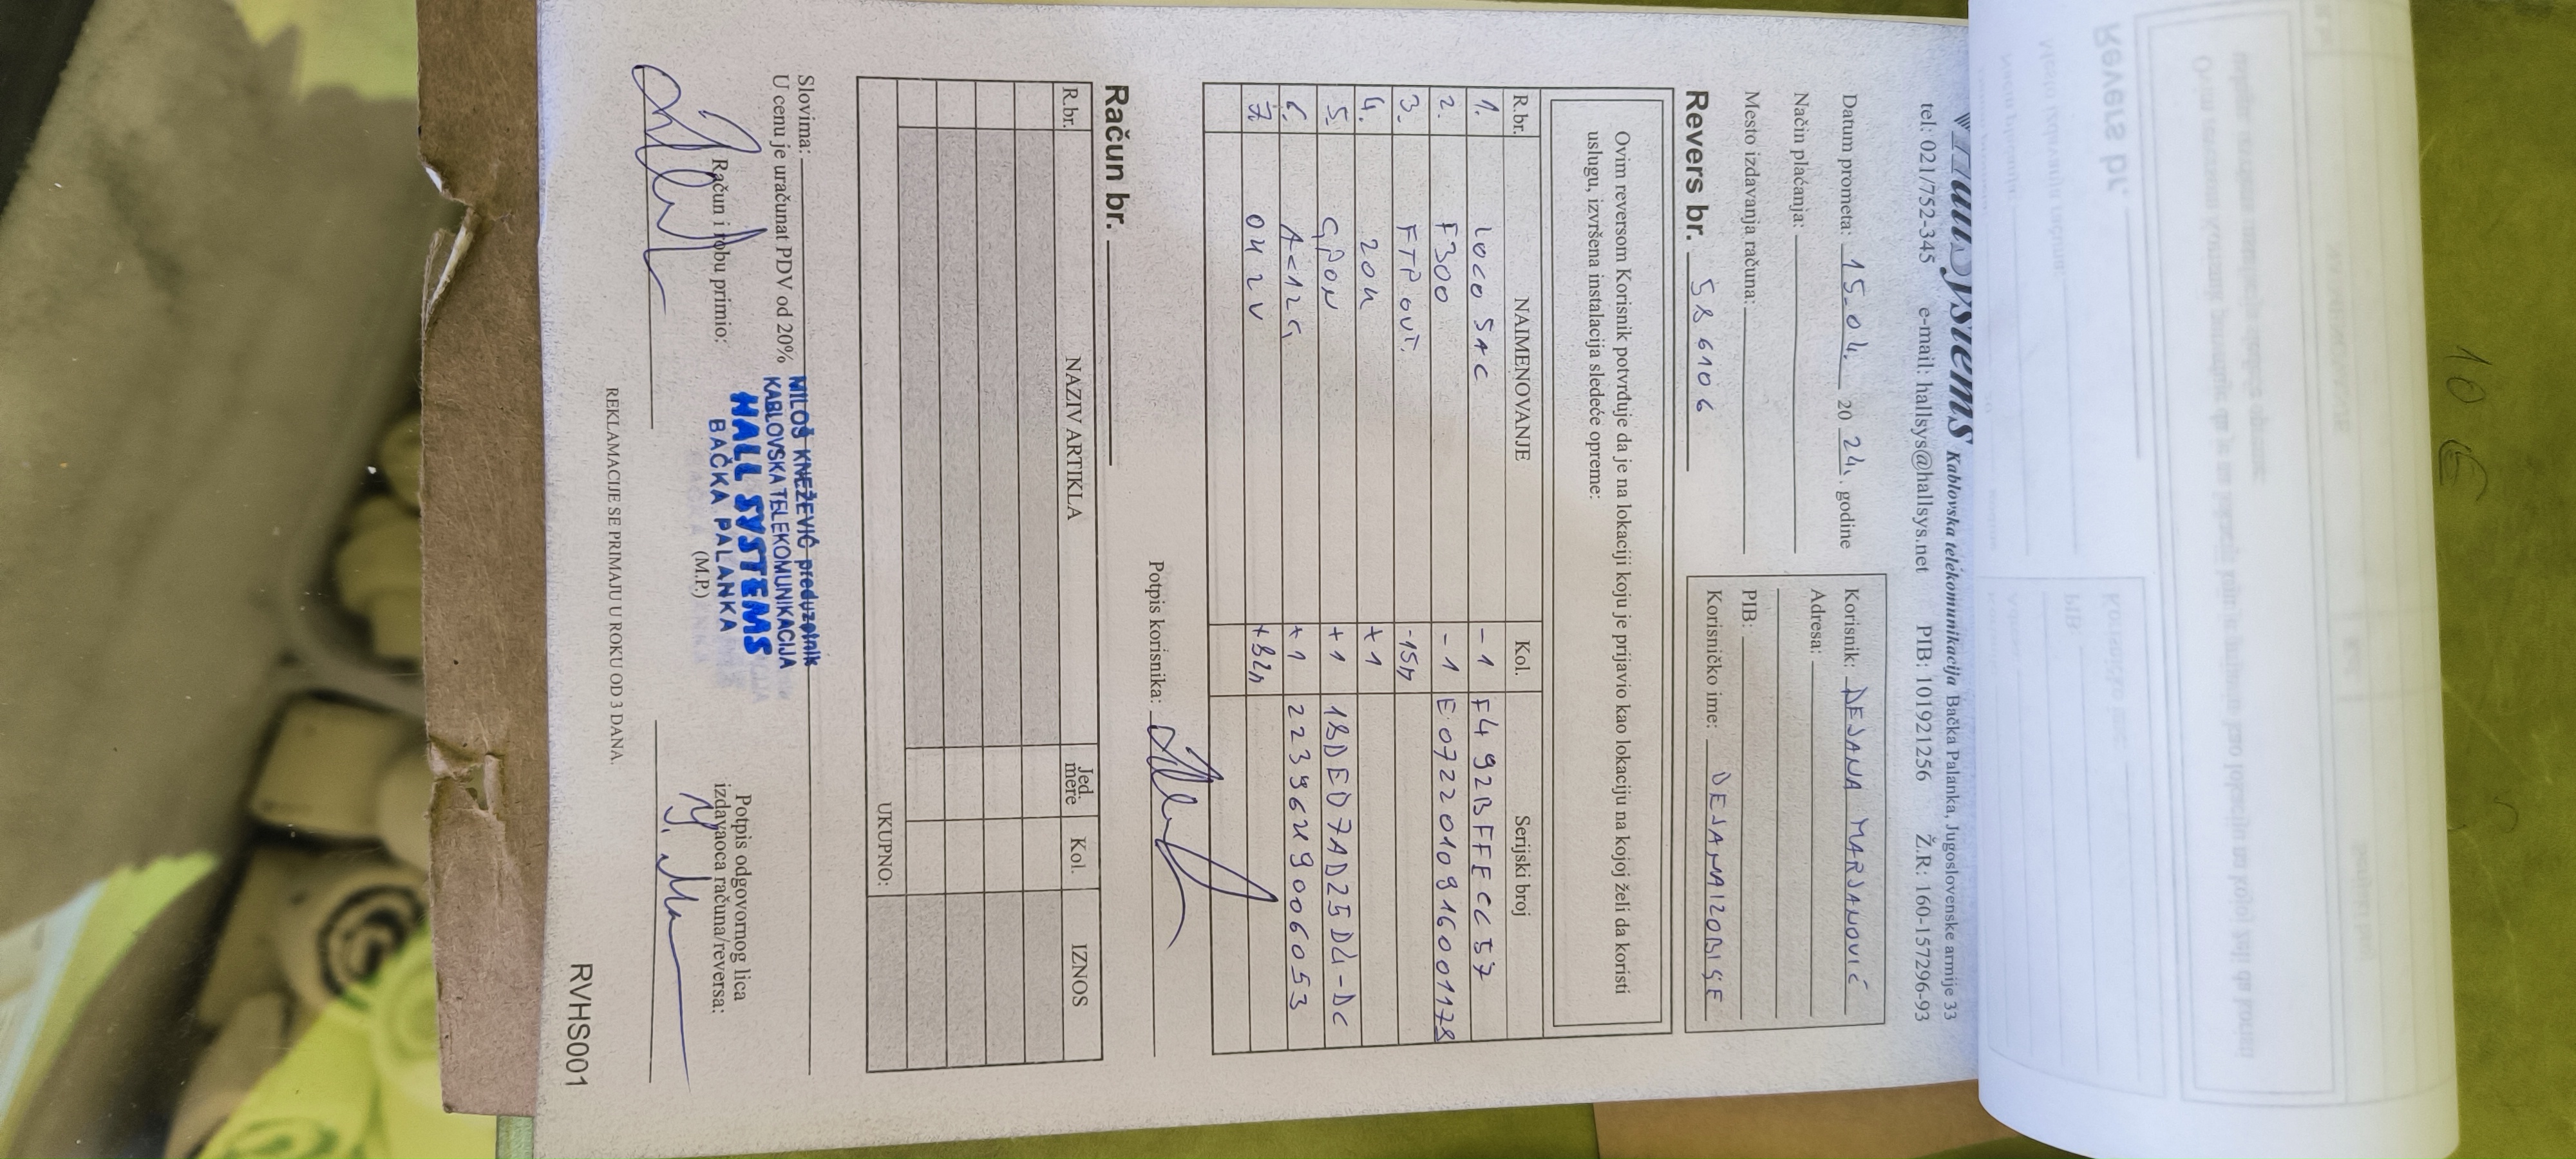 Hall Systems Kablovska telekomunikacija Bačka Palanka, Jugoslovenske armije 33
tel: 021/752-345 e-mail: hallsys@hallsys.net PIB: 101921256 Ž.R: 160-157296-93
Datum prometa: 15.04. 20 24. godine
Način plaćanja:
Mesto izdavanja računa:
Korisnik: DEJANA MARJANOVIĆ
Adresa:
PIB:
Korisničko ime: DEJANA120BIGE
Revers br. 586106
Ovim reversom Korisnik potvrđuje da je na lokaciji koju je prijavio kao lokaciju na kojoj želi da koristi
uslugu, izvršena instalacija sledeće opreme:
R.br. NAIMENOVANJE Kol. Serijski broj
1. LOCO 5AC -1 F492BFFECC57
2. F300 -1 E0722010916001178
3. FTP OUT. -15m
4. 20U +1
5. GPON +1 18DED7AD25D4-DC
6. AC12G +1 22396U9006053
7. OU 2V +82m
Potpis korisnika:
Račun br.
R.br. NAZIV ARTIKLA Jed. mere Kol. IZNOS
UKUPNO:
Slovima:
U cenu je uračunat PDV od 20%
MILOŠ KNEŽEVIĆ preduzetnik
KABLOVSKA TELEKOMUNIKACIJA
HALL SYSTEMS
BAČKA PALANKA
Račun i robu primio:
(M.P.)
Potpis odgovornog lica
izdavaoca računa/reversa:
REKLAMACIJE SE PRIMAJU U ROKU OD 3 DANA.
RVHS001
Revers br.
10 E